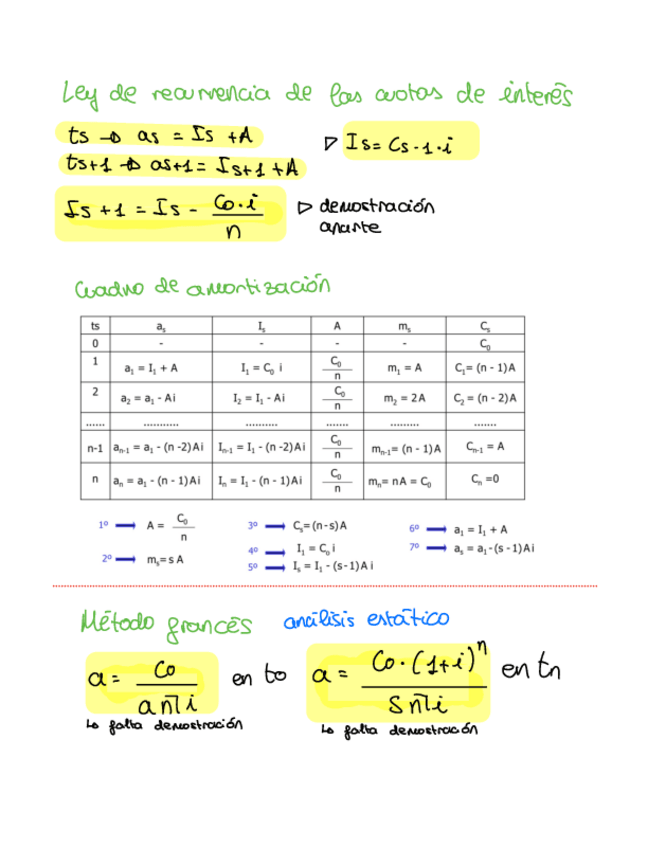 Ley de recurrencia de las cuotas de interés
ts → as = Is + A
▷ Is = Cs-1·i
ts+1 → as+1 = Is+1 + A
Is+1 = Is - Co·i / n
▷ demostración
aparte
Cuadro de amortización
ts as Is A ms Cs
0 - - - - C0
1 a1 = I1 + A I1 = C0 i C0/n m1 = A C1= (n - 1)A
2 a2 = a1 - Ai I2 = I1 - Ai C0/n m2 = 2A C2 = (n - 2)A
...... ........... .......... ....... ......... .......
n-1 an-1 = a1 - (n -2)Ai In-1 = I1 - (n -2)Ai C0/n mn-1= (n - 1)A Cn-1 = A
n an = a1 - (n - 1)Ai In = I1 - (n - 1)Ai C0/n mn= nA = C0 Cn =0
1º → A = C0/n
2º → ms=s A
3º → Cs=(n-s)A
4º → I1 = C0 i
5º → Is = I1 - (s-1)A i
6º → a1 = I1 + A
7º → as = a1-(s -1)Ai
Método francés análisis estático
a = Co / an¬i en to a = Co·(1+i)^n / Sn¬i en tn
↳ falta demostración
↳ falta demostración